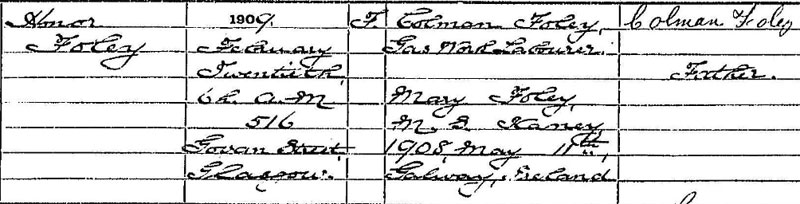 Honor 1909 F Colman Foley, Colman Foley
Foley February Gas Work Labourer.
Twentieth, Father.
6h. A.M. Mary Foley,
516 M. S.
Govan Street, 1908, May 11th,
Glasgow. Galway, Ireland